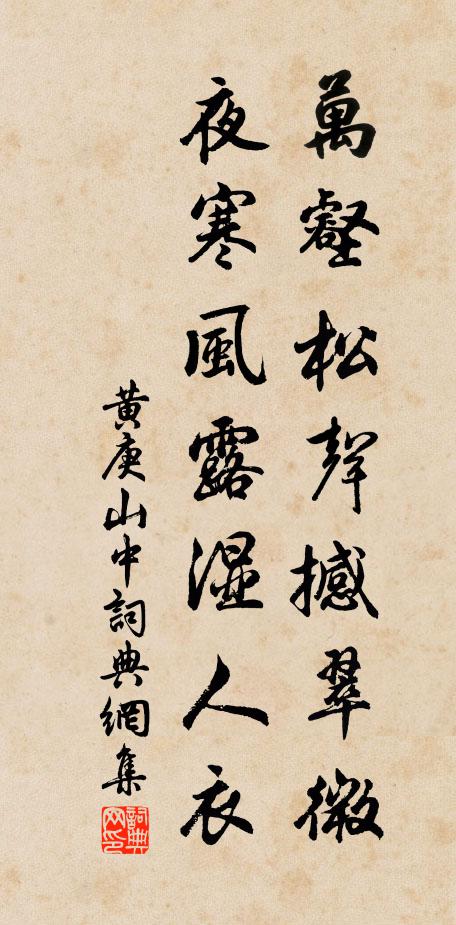 萬壑松聲撼翠微
夜寒風露濕人衣
黄庚山中詞典網集
詞典網印